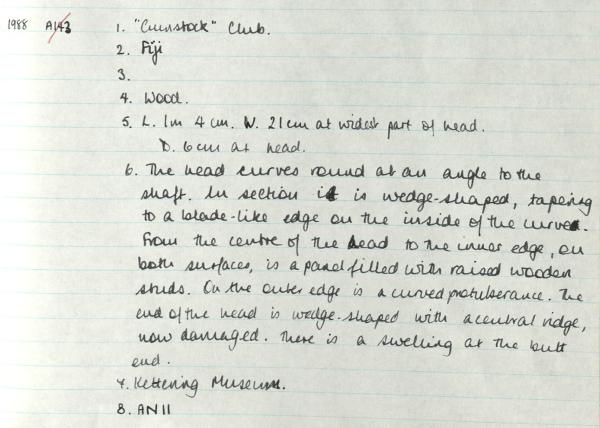 1988 A143 1. "Gunstock" Club.
2. Fiji
3.
4. Wood.
5. L. 1m 4 cm. W. 21cm at widest part of head.
D. 6cm at head.
6. The head curves round at an angle to the
shaft. In section it is wedge-shaped, tapering
to a blade-like edge on the inside of the curve.
From the centre of the head to the inner edge, on
both surfaces, is a panel filled with raised wooden
studs. On the outer edge is a curved protuberance. The
end of the head is wedge-shaped with a central ridge,
now damaged. There is a swelling at the butt
end.
7. Kettering Museum.
8. AN11